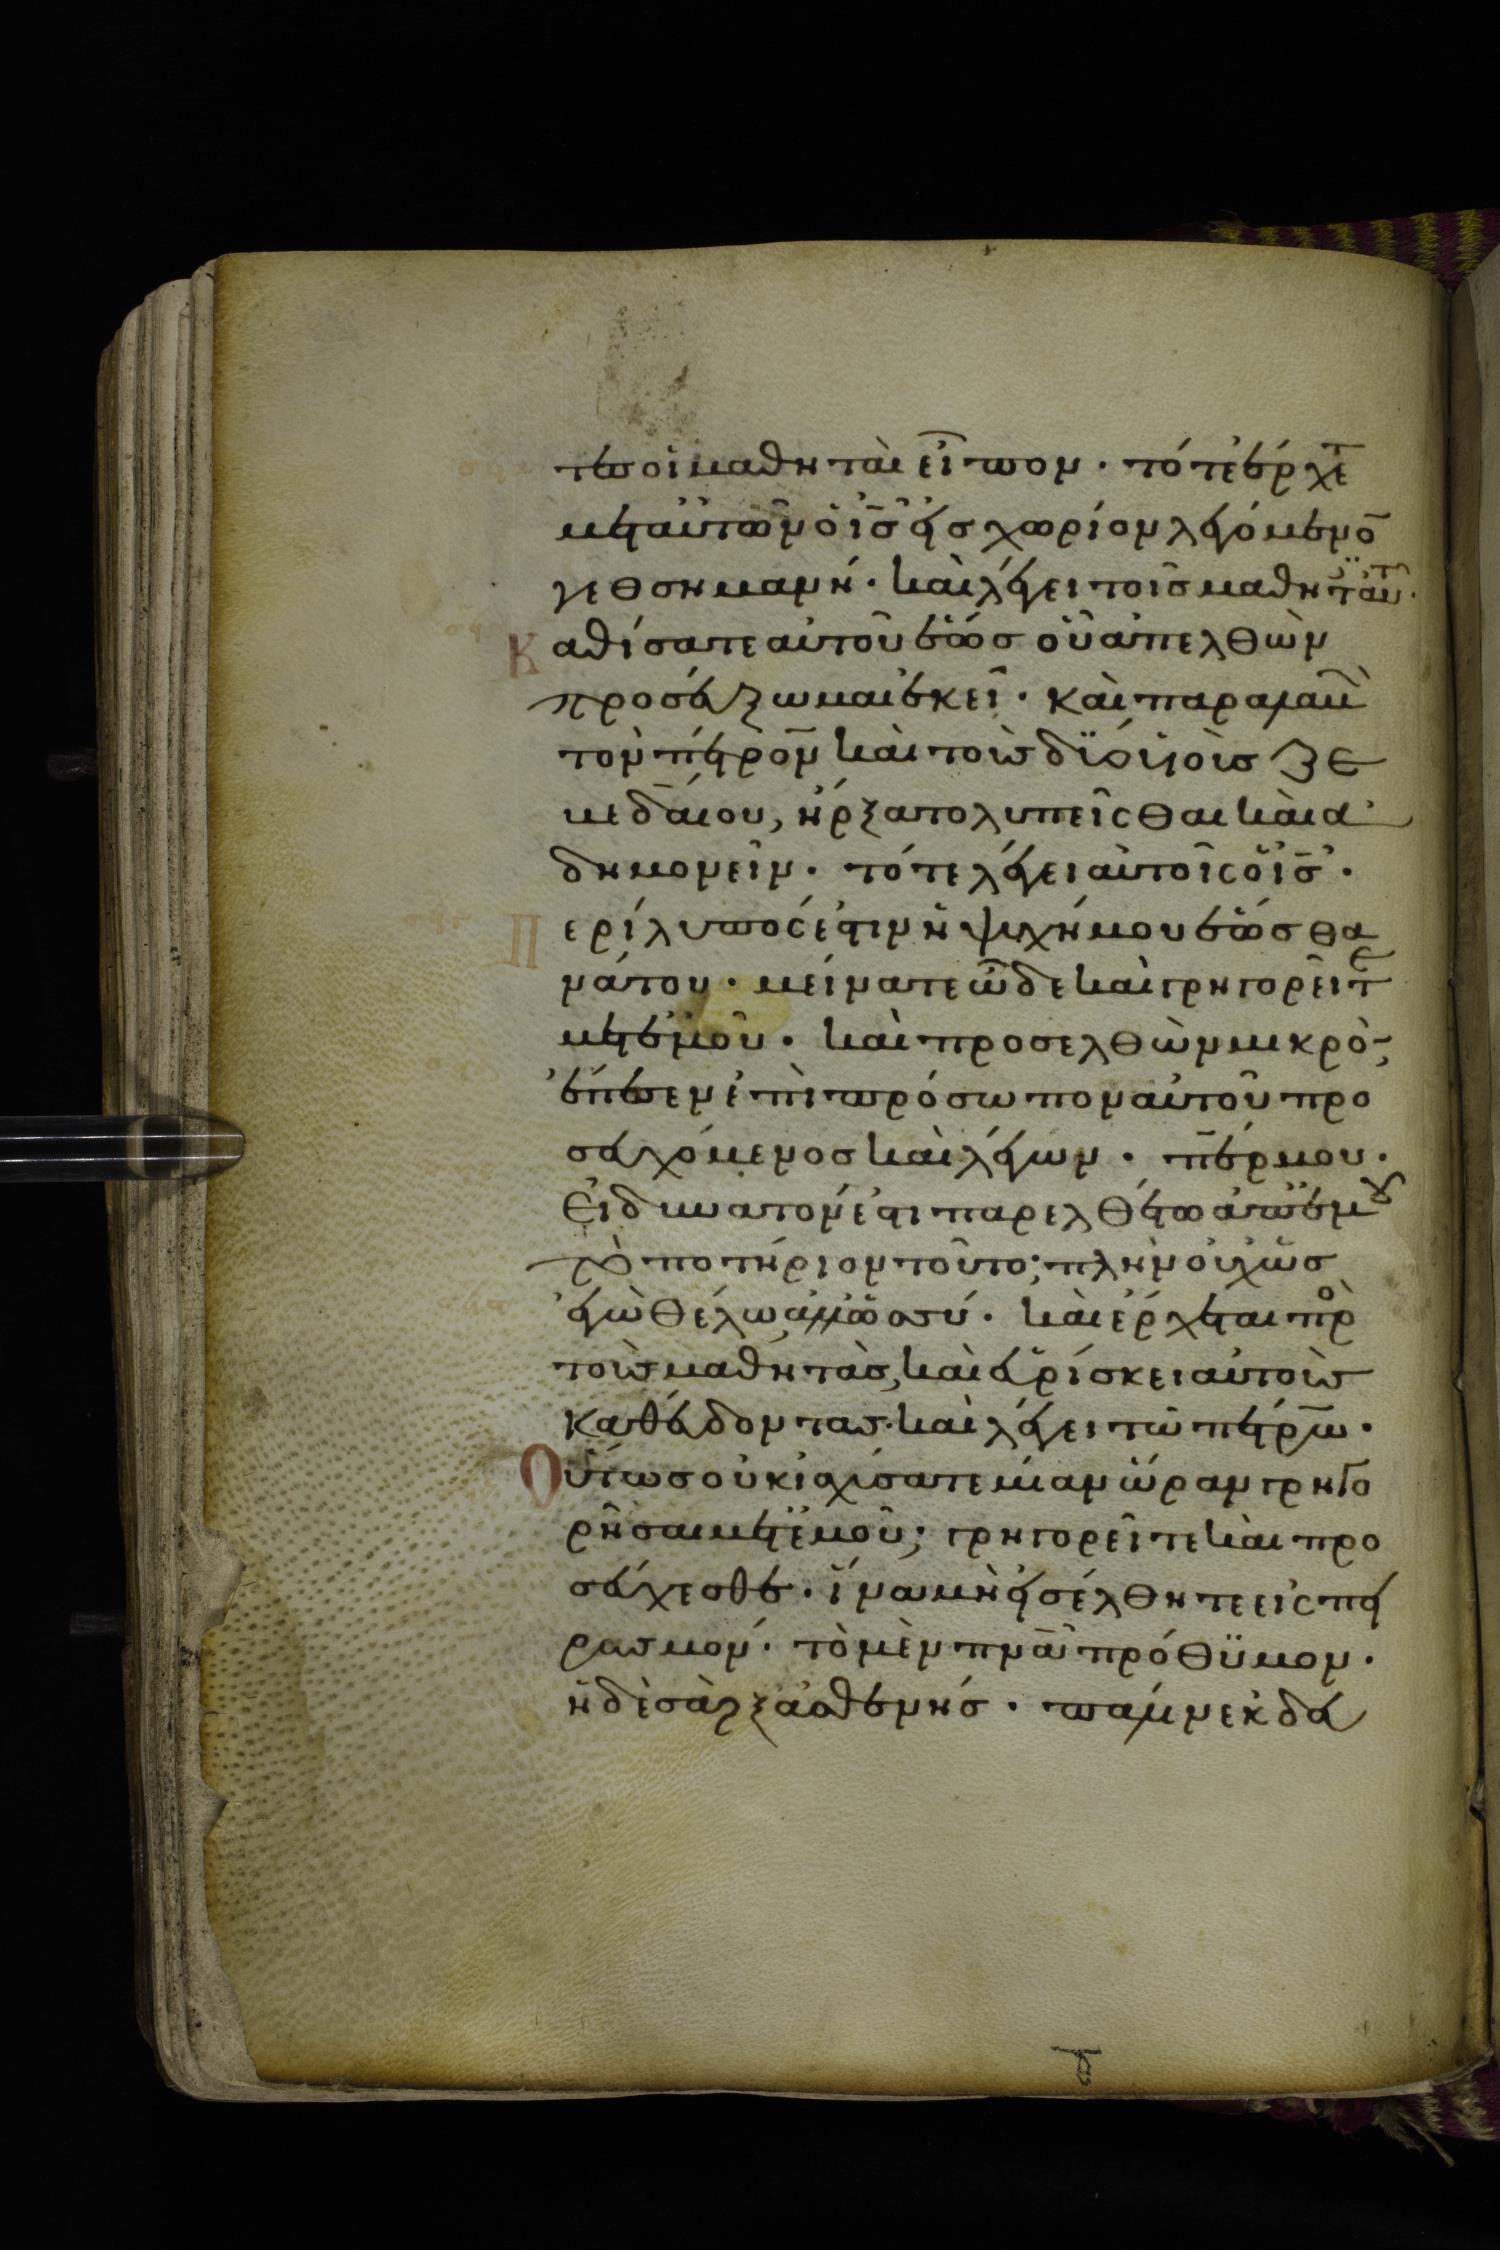 τες οἱ μαθηταὶ εἶπον · τότε ἔρχετ
μετ αὐτῶν ὁ ι̅ς̅ εἰς χωρίον λεγόμενο̅
γεθσημανή · καὶ λέγει τοῖς μαθηταῖς αὐτ ·
Καθίσατε αὐτοῦ ἕως οὗ ἀπελθὼν
προσεύξωμαι ἐκεῖ · καὶ παραλαβὼ
τὸν πέτρον καὶ τοὺς δύο υἱοὺς ζε
βεδαίου, ἤρξατο λυπεῖσθαι καὶ ἀ
δημονεῖν · τότε λέγει αὐτοῖς ὁ ι̅ς̅ ·
Περίλυπός ἐστιν ἡ ψυχή μου ἕως θα
νάτου · μείνατε ὧδε καὶ γρηγορεῖτε
μετ ἐμοῦ · καὶ προσελθὼν μικρὸν
ἔπεσεν ἐπὶ πρόσωπον αὐτοῦ προ
σευχόμενος καὶ λέγων · π̅ε̅ρ μου ·
Εἰ δυνατόν ἐστι παρελθέτω ἀπ ἐμου
τὸ ποτήριον τοῦτο · πλὴν οὐχ ὡς
ἐγὼ θέλω ἀλλ ὡς σύ · καὶ ἔρχεται προ
τοὺς μαθητὰς, καὶ εὑρίσκει αὐτοὺς
καθεύδοντας · καὶ λέγει τῷ πέτρω ·
Οὕτως οὐκ ἰσχύσατε μίαν ὥραν γρηγο
ρῆσαι μετ ἐμοῦ; γρηγορεῖτε καὶ προ
σεύχεσθε · ἵνα μὴ εἰσέλθητε εἰς πει
ρασμόν · τὸ μὲν π̅ν̅α̅ πρόθυμον ·
ἡ δὲ σὰρξ ἀσθενής · πάλιν ἐκ δευ